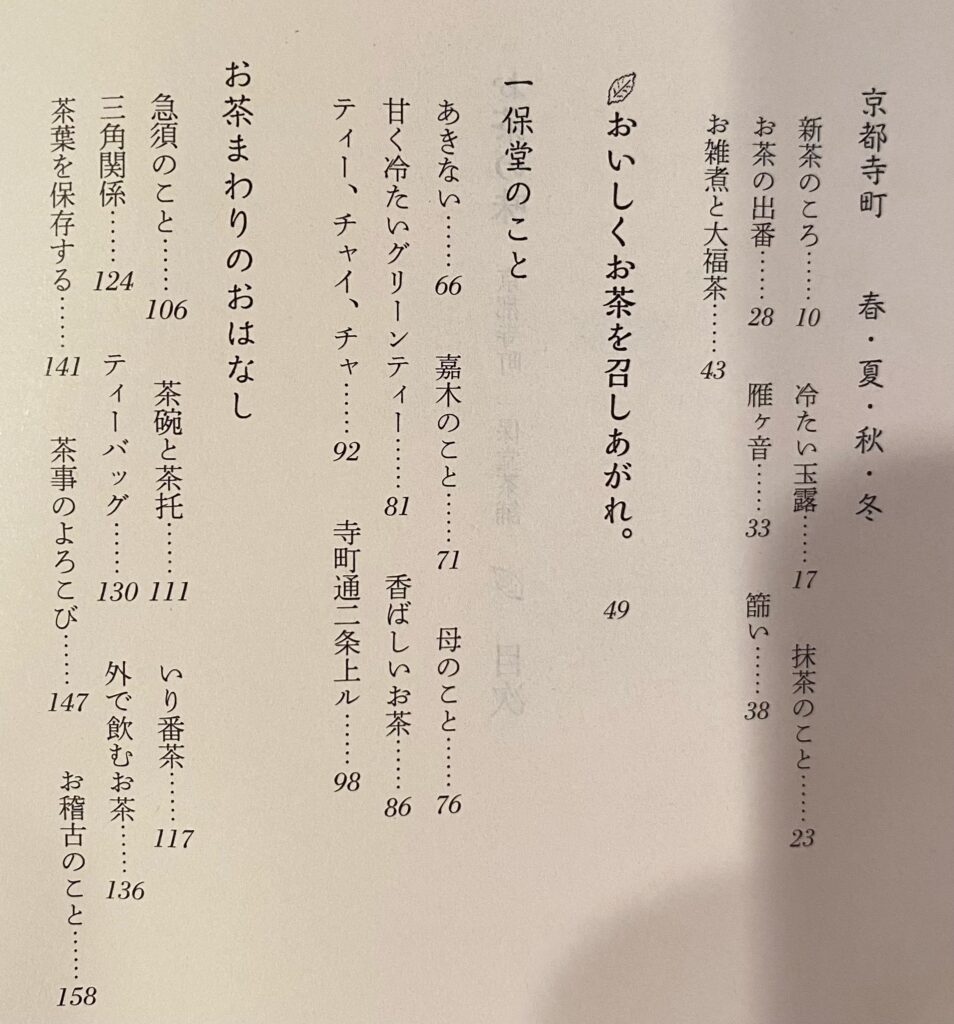 京都寺町　春・夏・秋・冬
新茶のころ……10　冷たい玉露……17　抹茶のこと……23
お茶の出番……28　雁ヶ音……33　篩い……38
お雑煮と大福茶……43
おいしくお茶を召しあがれ。　49
一保堂のこと
あきない……66　嘉木のこと……71　母のこと……76
甘く冷たいグリーンティー……81　香ばしいお茶……86
ティー、チャイ、チャ……92　寺町通二条上ル……98
お茶まわりのおはなし
急須のこと……106　茶碗と茶托……111　いり番茶……117
三角関係……124　ティーバッグ……130　外で飲むお茶……136
茶葉を保存する……141　茶事のよろこび……147　お稽古のこと……158